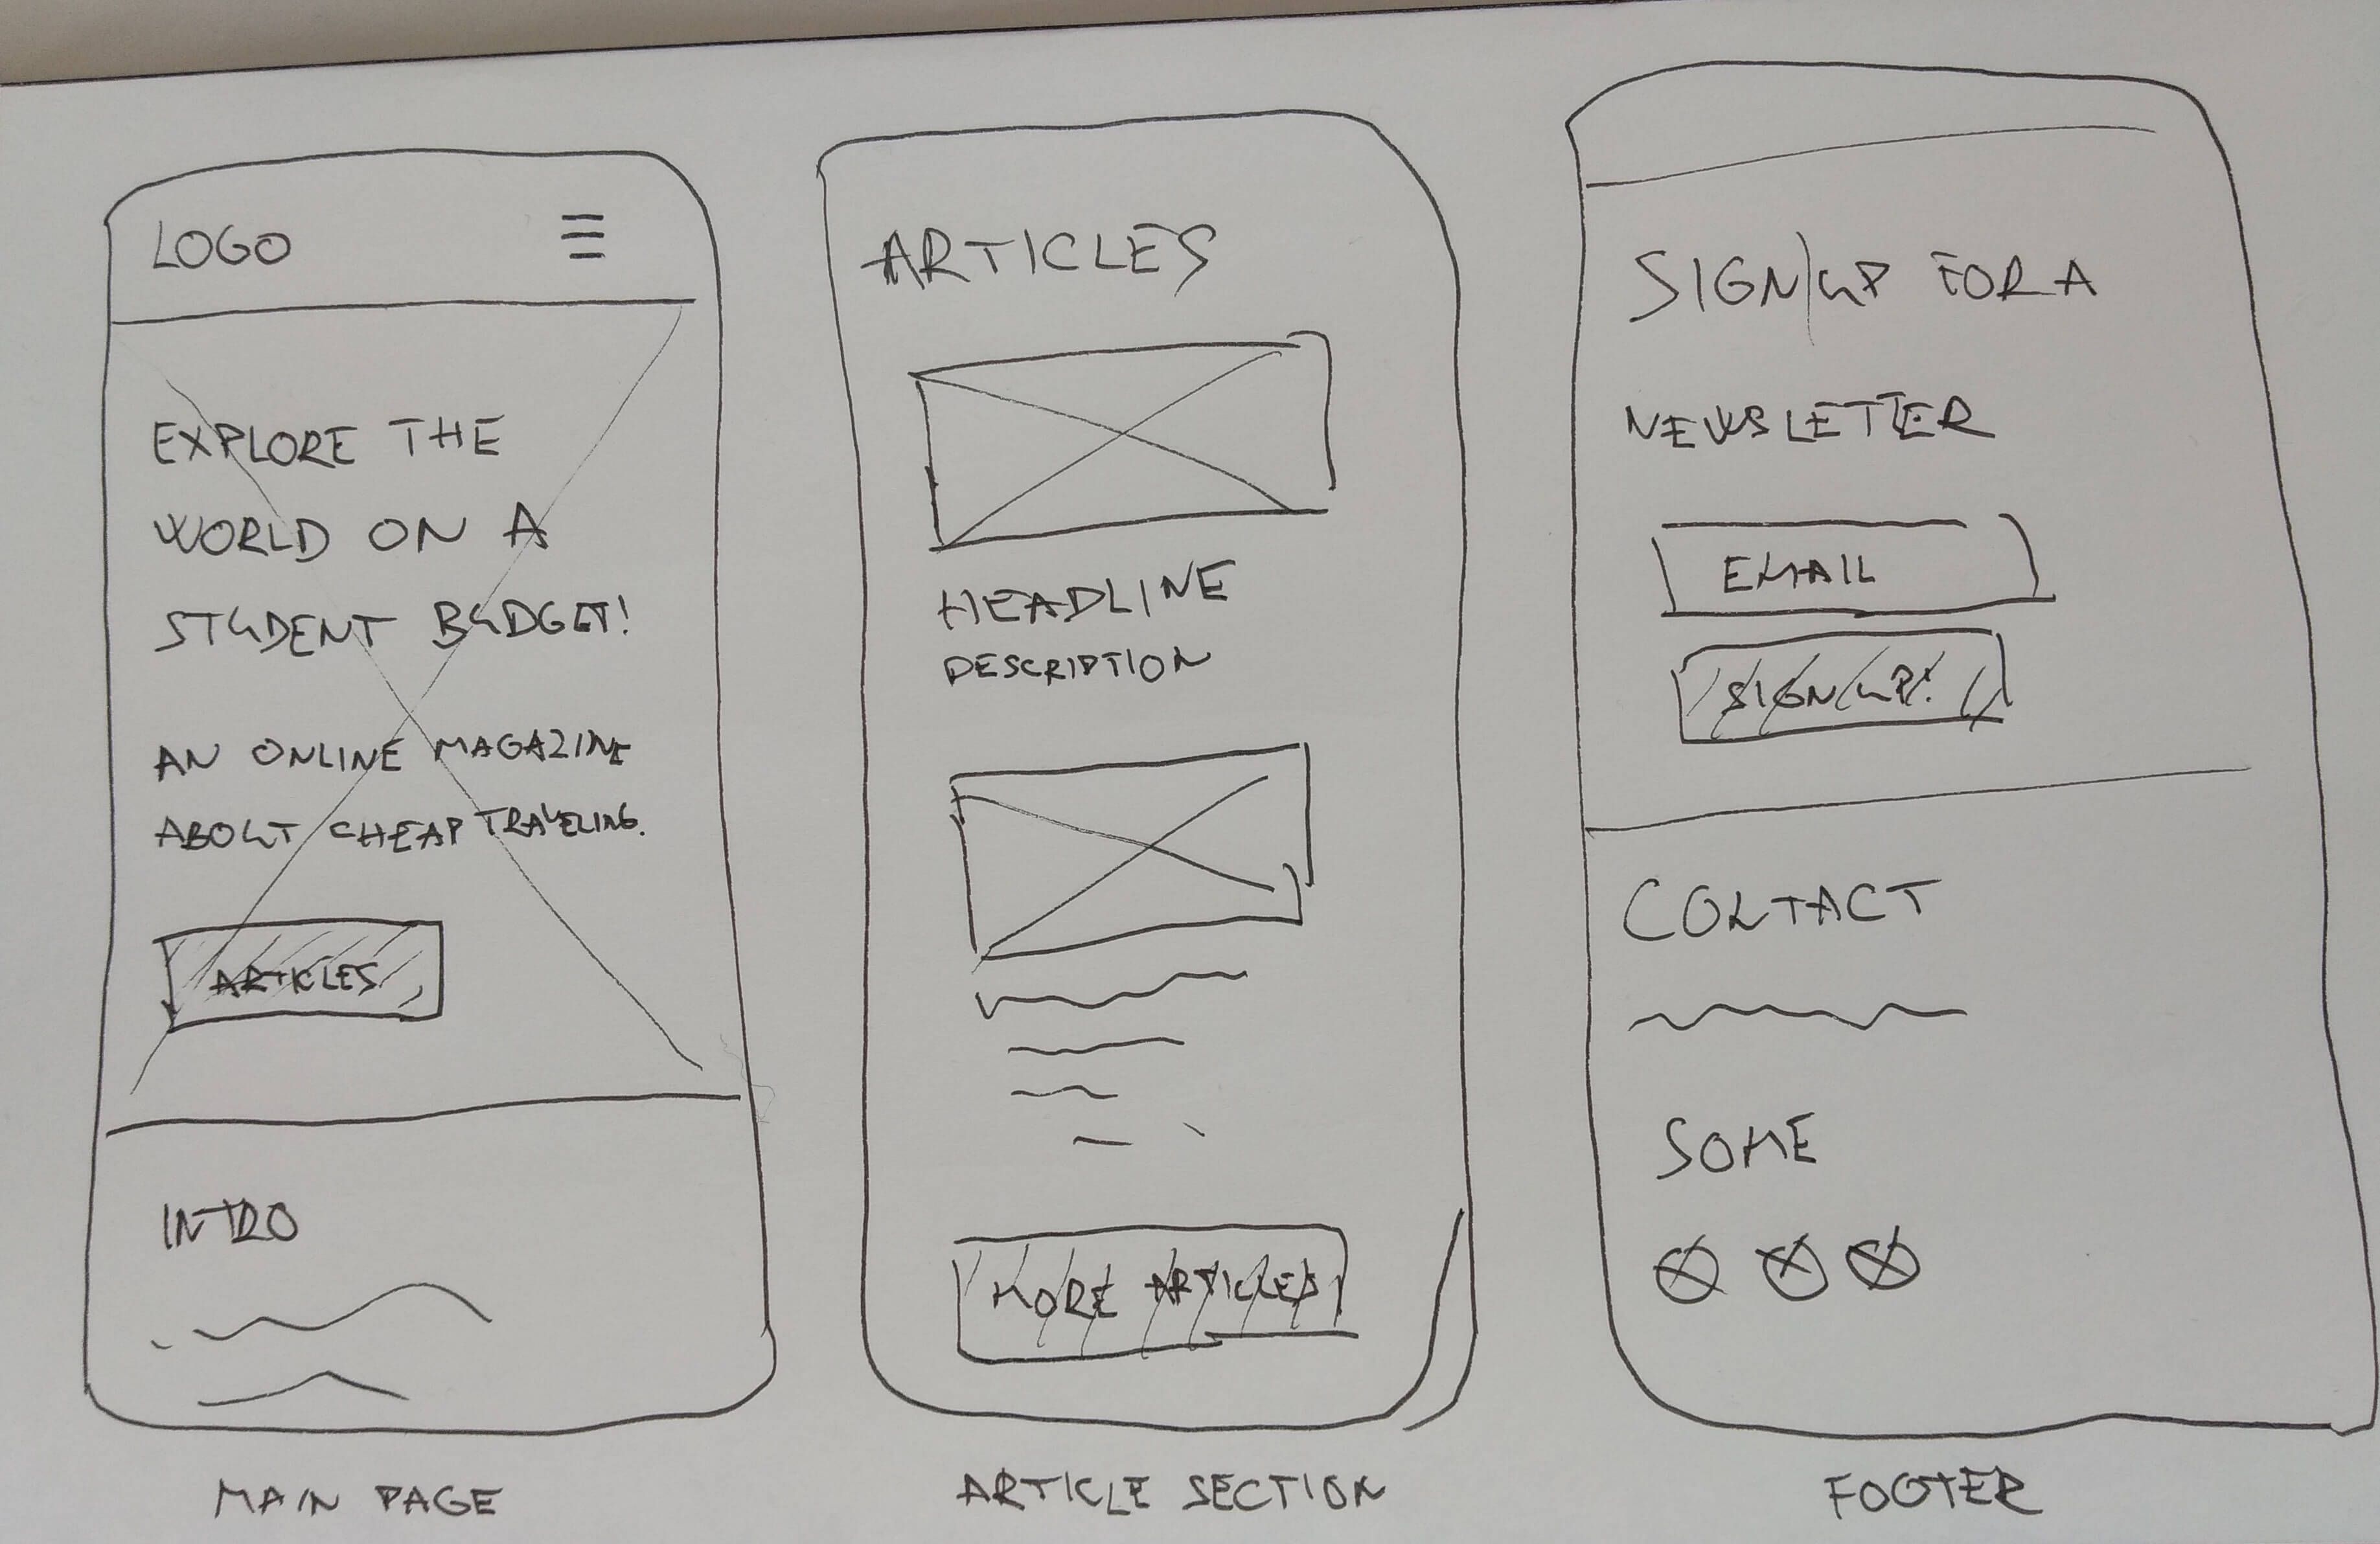 LOGO
EXPLORE THE
WORLD ON A
STUDENT BUDGET!
AN ONLINE MAGAZINE
ABOUT CHEAP TRAVELING.
ARTICLES
INTRO
MAIN PAGE
ARTICLES
HEADLINE
DESCRIPTION
MORE ARTICLES
ARTICLE SECTION
SIGN UP FOR A
NEWSLETTER
EMAIL
SIGN UP!
CONTACT
SOME
FOOTER